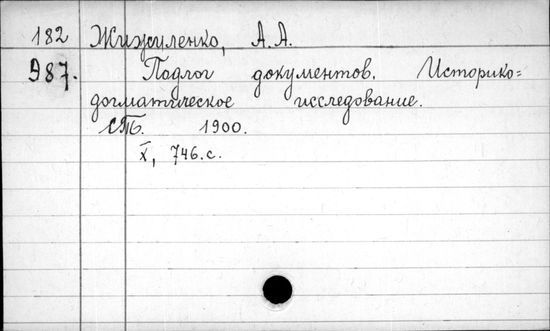 182 Жижиленко, А.А.
Э87. Подлог документов. Историко=
догматическое исследование.
СПб. 1900.
X, 746.с.